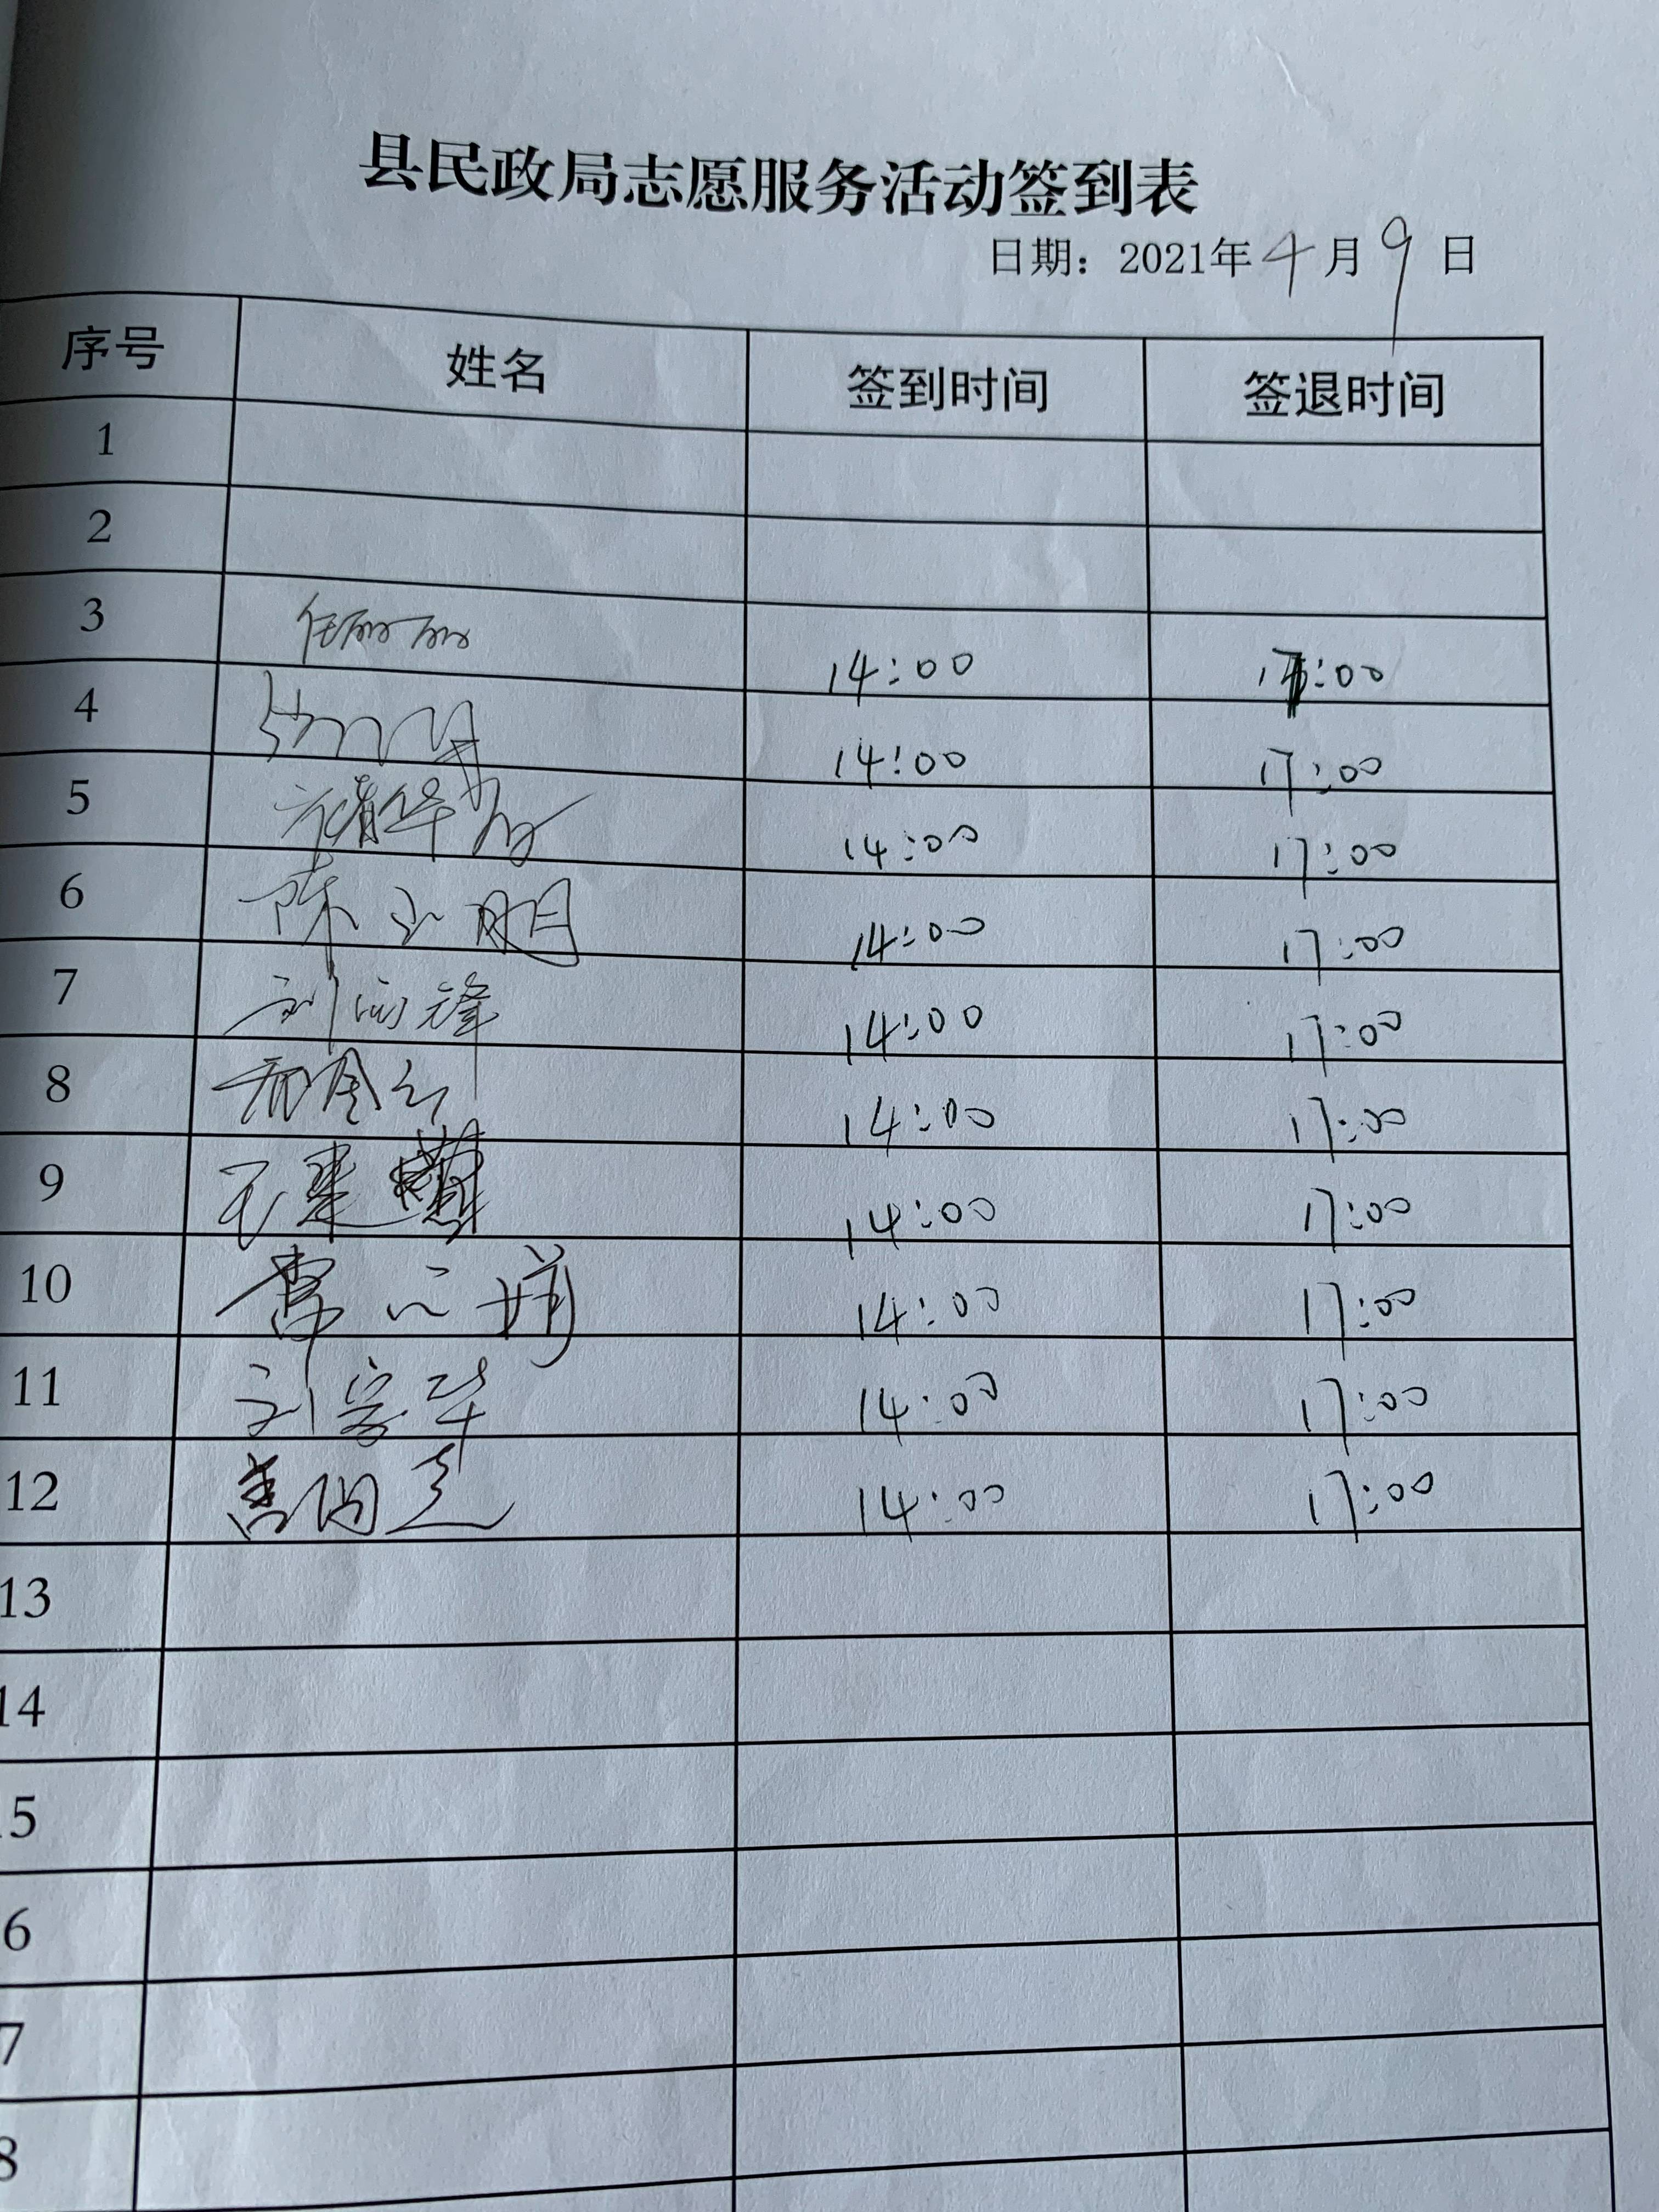 县民政局志愿服务活动签到表
日期：2021年4月9日
序号 姓名 签到时间 签退时间
1
2
3 任丽丽 14:00 17:00
4 14:00 17:00
5 14:00 17:00
6 陈 明 14:00 17:00
7 刘 锋 14:00 17:00
8 14:00 17:00
9 14:00 17:00
10 14:00 17:00
11 刘 华 14:00 17:00
12 14:00 17:00
13
14
5
6
7
8